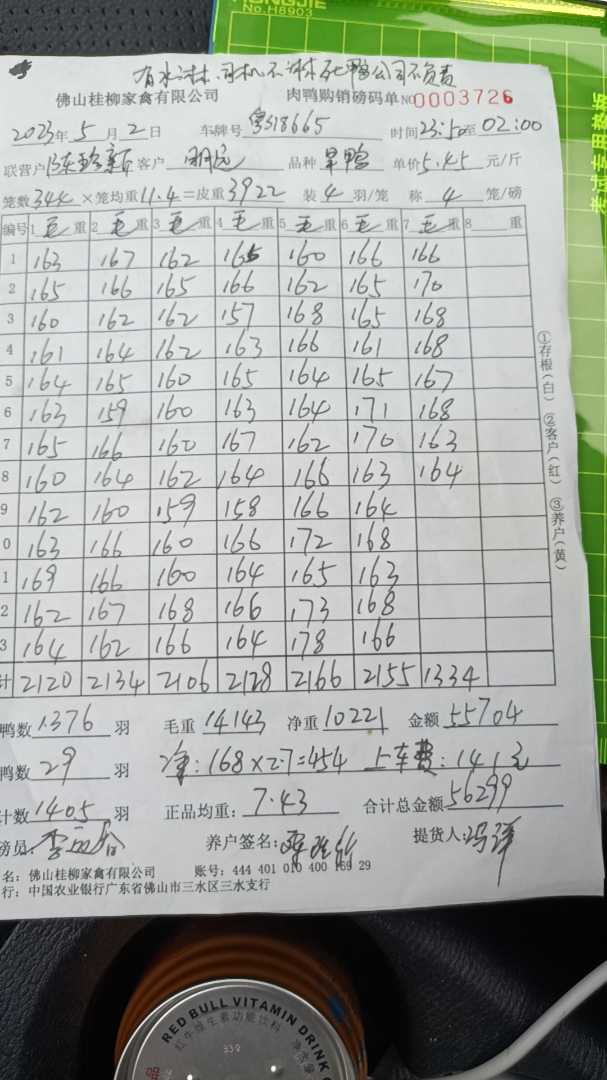 No.H8903
有水淋,司机不淋死鸭公司不负责
佛山桂柳家禽有限公司 肉鸭购销磅码单 №0003726
2023年5月2日 车牌号 粤S18665 时间23:50至02:00
联营户 客户 明远 品种 旱鸭 单价5.45元/斤
笼数344×笼均重11.4=皮重3922 装4羽/笼 称4笼/磅
编号 1毛重 2毛重 3毛重 4毛重 5毛重 6毛重 7毛重 8 重
1 163 167 162 165 160 166 166
2 165 166 165 166 162 165 170
3 160 162 162 157 168 165 168
4 161 164 162 163 166 161 168
5 164 165 160 165 164 165 167
6 163 159 160 163 164 171 168
7 165 166 160 167 162 170 163
8 160 164 162 164 166 163 164
9 162 160 159 158 166 164
0 163 166 160 166 172 168
1 169 166 160 164 165 163
2 162 167 168 166 173 168
3 164 162 166 164 178 166
计 2120 2134 2106 2128 2166 2155 1334
鸭数1376羽 毛重14143 净重10221 金额55704
鸭数29羽 净:168×2.7=454 上车费:141元
计数1405羽 正品均重:7.43 合计总金额56299
磅员: 养户签名: 提货人:
名:佛山桂柳家禽有限公司 账号:444 401 010 400 169 29
行:中国农业银行广东省佛山市三水区三水支行
①存根(白) ②客户(红) ③养户(黄)
考试专用垫
RED BULL VITAMIN DRINK
红牛维生素功能饮料